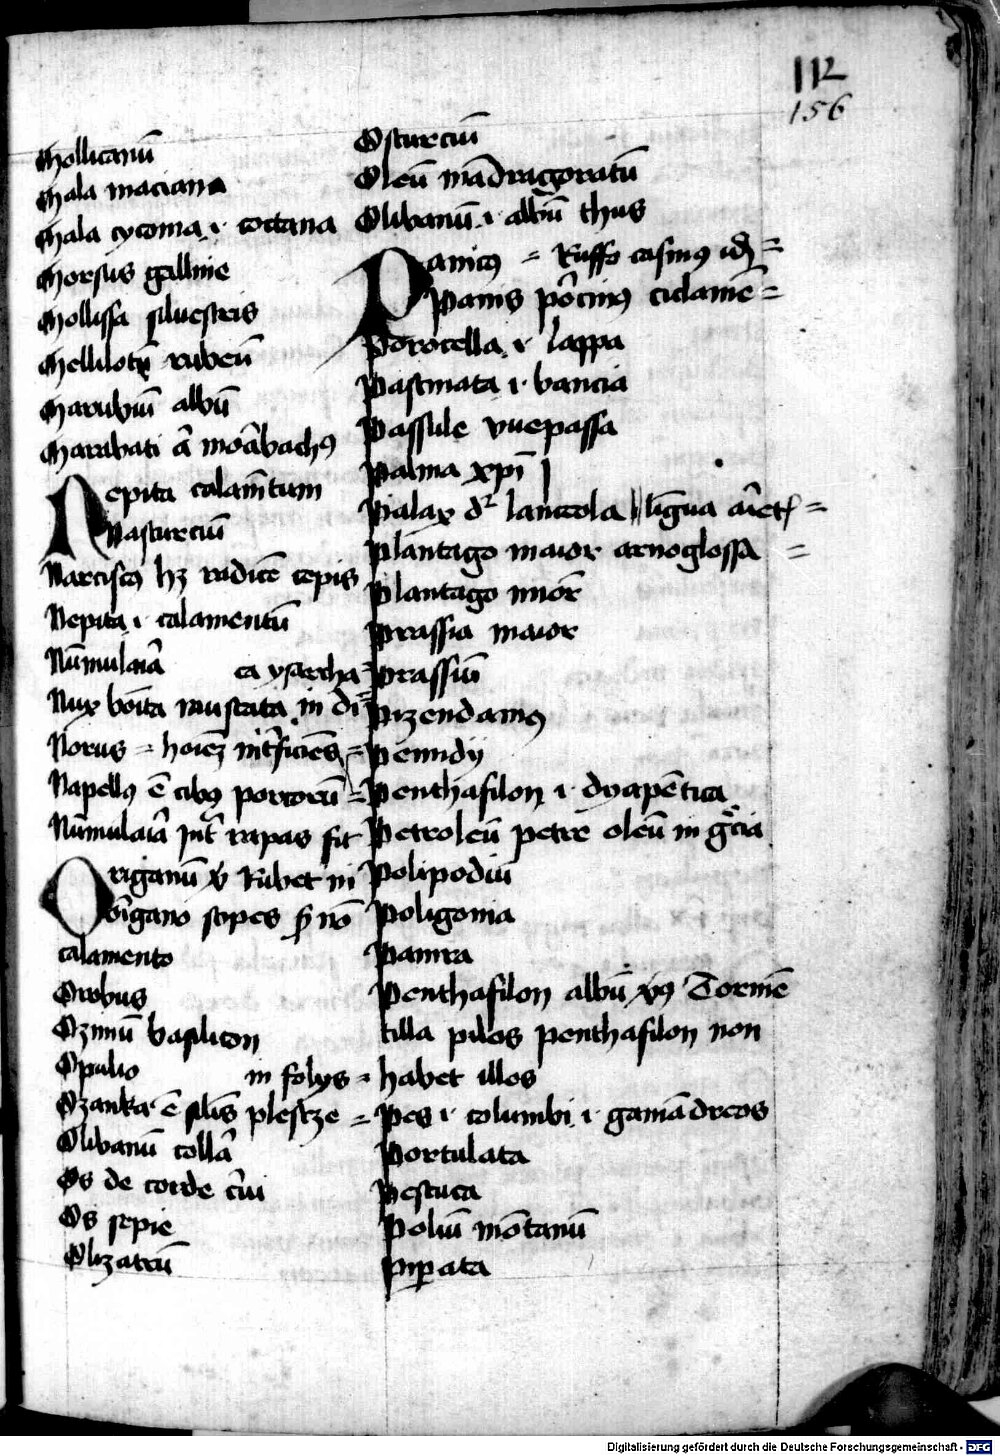 112
156
Mollicanū
Mala maciana
Mala cycoma .i. coctana
Morsus galline
Mellissa siluestris
Mellilotū rubeū
Marubiū albū
Marabati
Nepita calamētum
Nasturciū
Narciscꝰ hꝫ radicē cepis
Nepita .i. calamentū
Nūmularia
ca ysarcha
Nux muscata in
Norus = hoiēꝫ
Napellꝰ ē cibꝰ =
Nūmularia rapas sit
Origanū Rubet in
origano stipes nō
calamento
Orobus
Ozimū basilicon
Opulio
in folys =
ē silīs plestze =
Olibanū
Os de corde cerui
Os sepie
Olizatrū
Osturciū
Oleū mādragoratū
Olibanū .i. albū thus
Panicꝰ = Ruffo =
Panis porcinꝰ ciclamē =
Porocella .i. lappa
Pastinata .i. bancia
Passule vuepassa
Palma xpī
lanceola lingua =
Plantago maior arnoglossa =
Plantago minor
Prassia maior
Prassiū
Pizendamꝰ
Penidy
Penthafilon .i. dyapētica
Petroleū petre oleū in
Polipodiū
Poligonia
Penthafilon albū Tormē
tilla pilos penthafilon non
habet illos
Pes .i. columbi .i. gamādreos
Portulata
Pestuca
Poliū mōtanū
Piꝑata
Digitalisierung gefördert durch die Deutsche Forschungsgemeinschaft - DFG